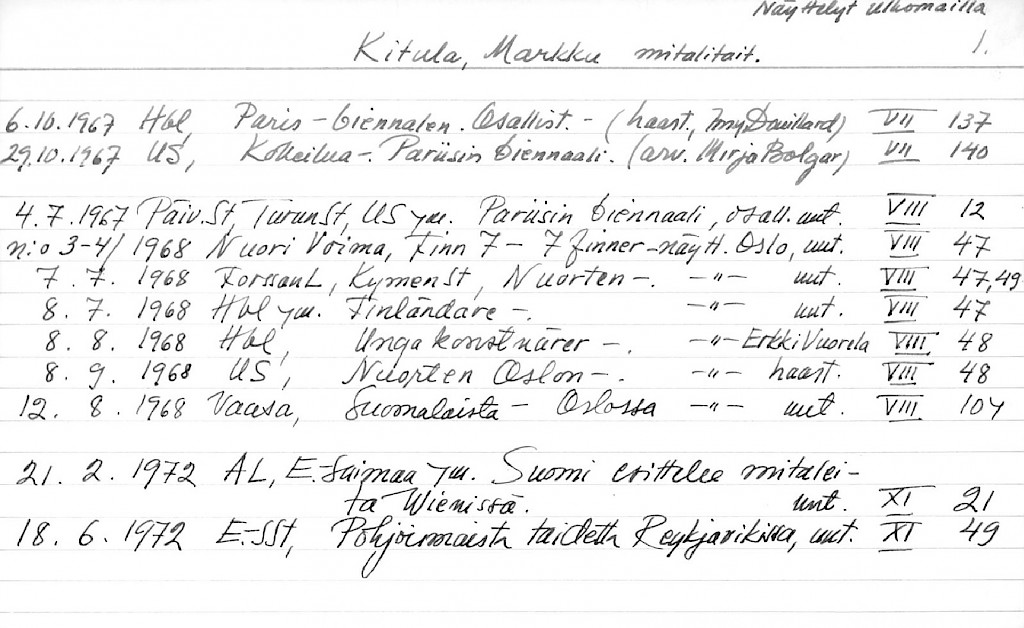 Näyttelyt ulkomailla
1.
Kitula, Markku mitalitait.
6.10.1967 Hbl, Paris-biennalen. Osallist.- (haast., Douillard) VII 137
29.10.1967 US, Kokeilua-. Pariisin biennaali. (arv. Mirja Bolgar) VII 140
4.7.1967 Päiv.St, TurunSt, US ym. Pariisin biennaali, osall. uut. VIII 12
n:o 3-4/1968 Nuori Voima, Finn 7 - 7 finner-näytt. Oslo, uut. VIII 47
7.7. 1968 ForssanL, KymenSt, Nuorten-. -"- uut. VIII 47,49
8.7. 1968 Hbl ym. Finländare-. -"- uut. VIII 47
8.8. 1968 Hbl, Unga konstnärer-. -"- Erkki Vuorela VIII 48
8.9. 1968 US, Nuorten Oslon-. -"- haast. VIII 48
12.8.1968 Vaasa, Suomalaista- Oslossa -"- uut. VIII 104
21.2.1972 AL, E.Saimaa ym. Suomi esittelee mitalei-
ta Wienissä. uut. XI 21
18.6.1972 E-SSt, Pohjoismaista taidetta Reykjavikissa, uut. XI 49